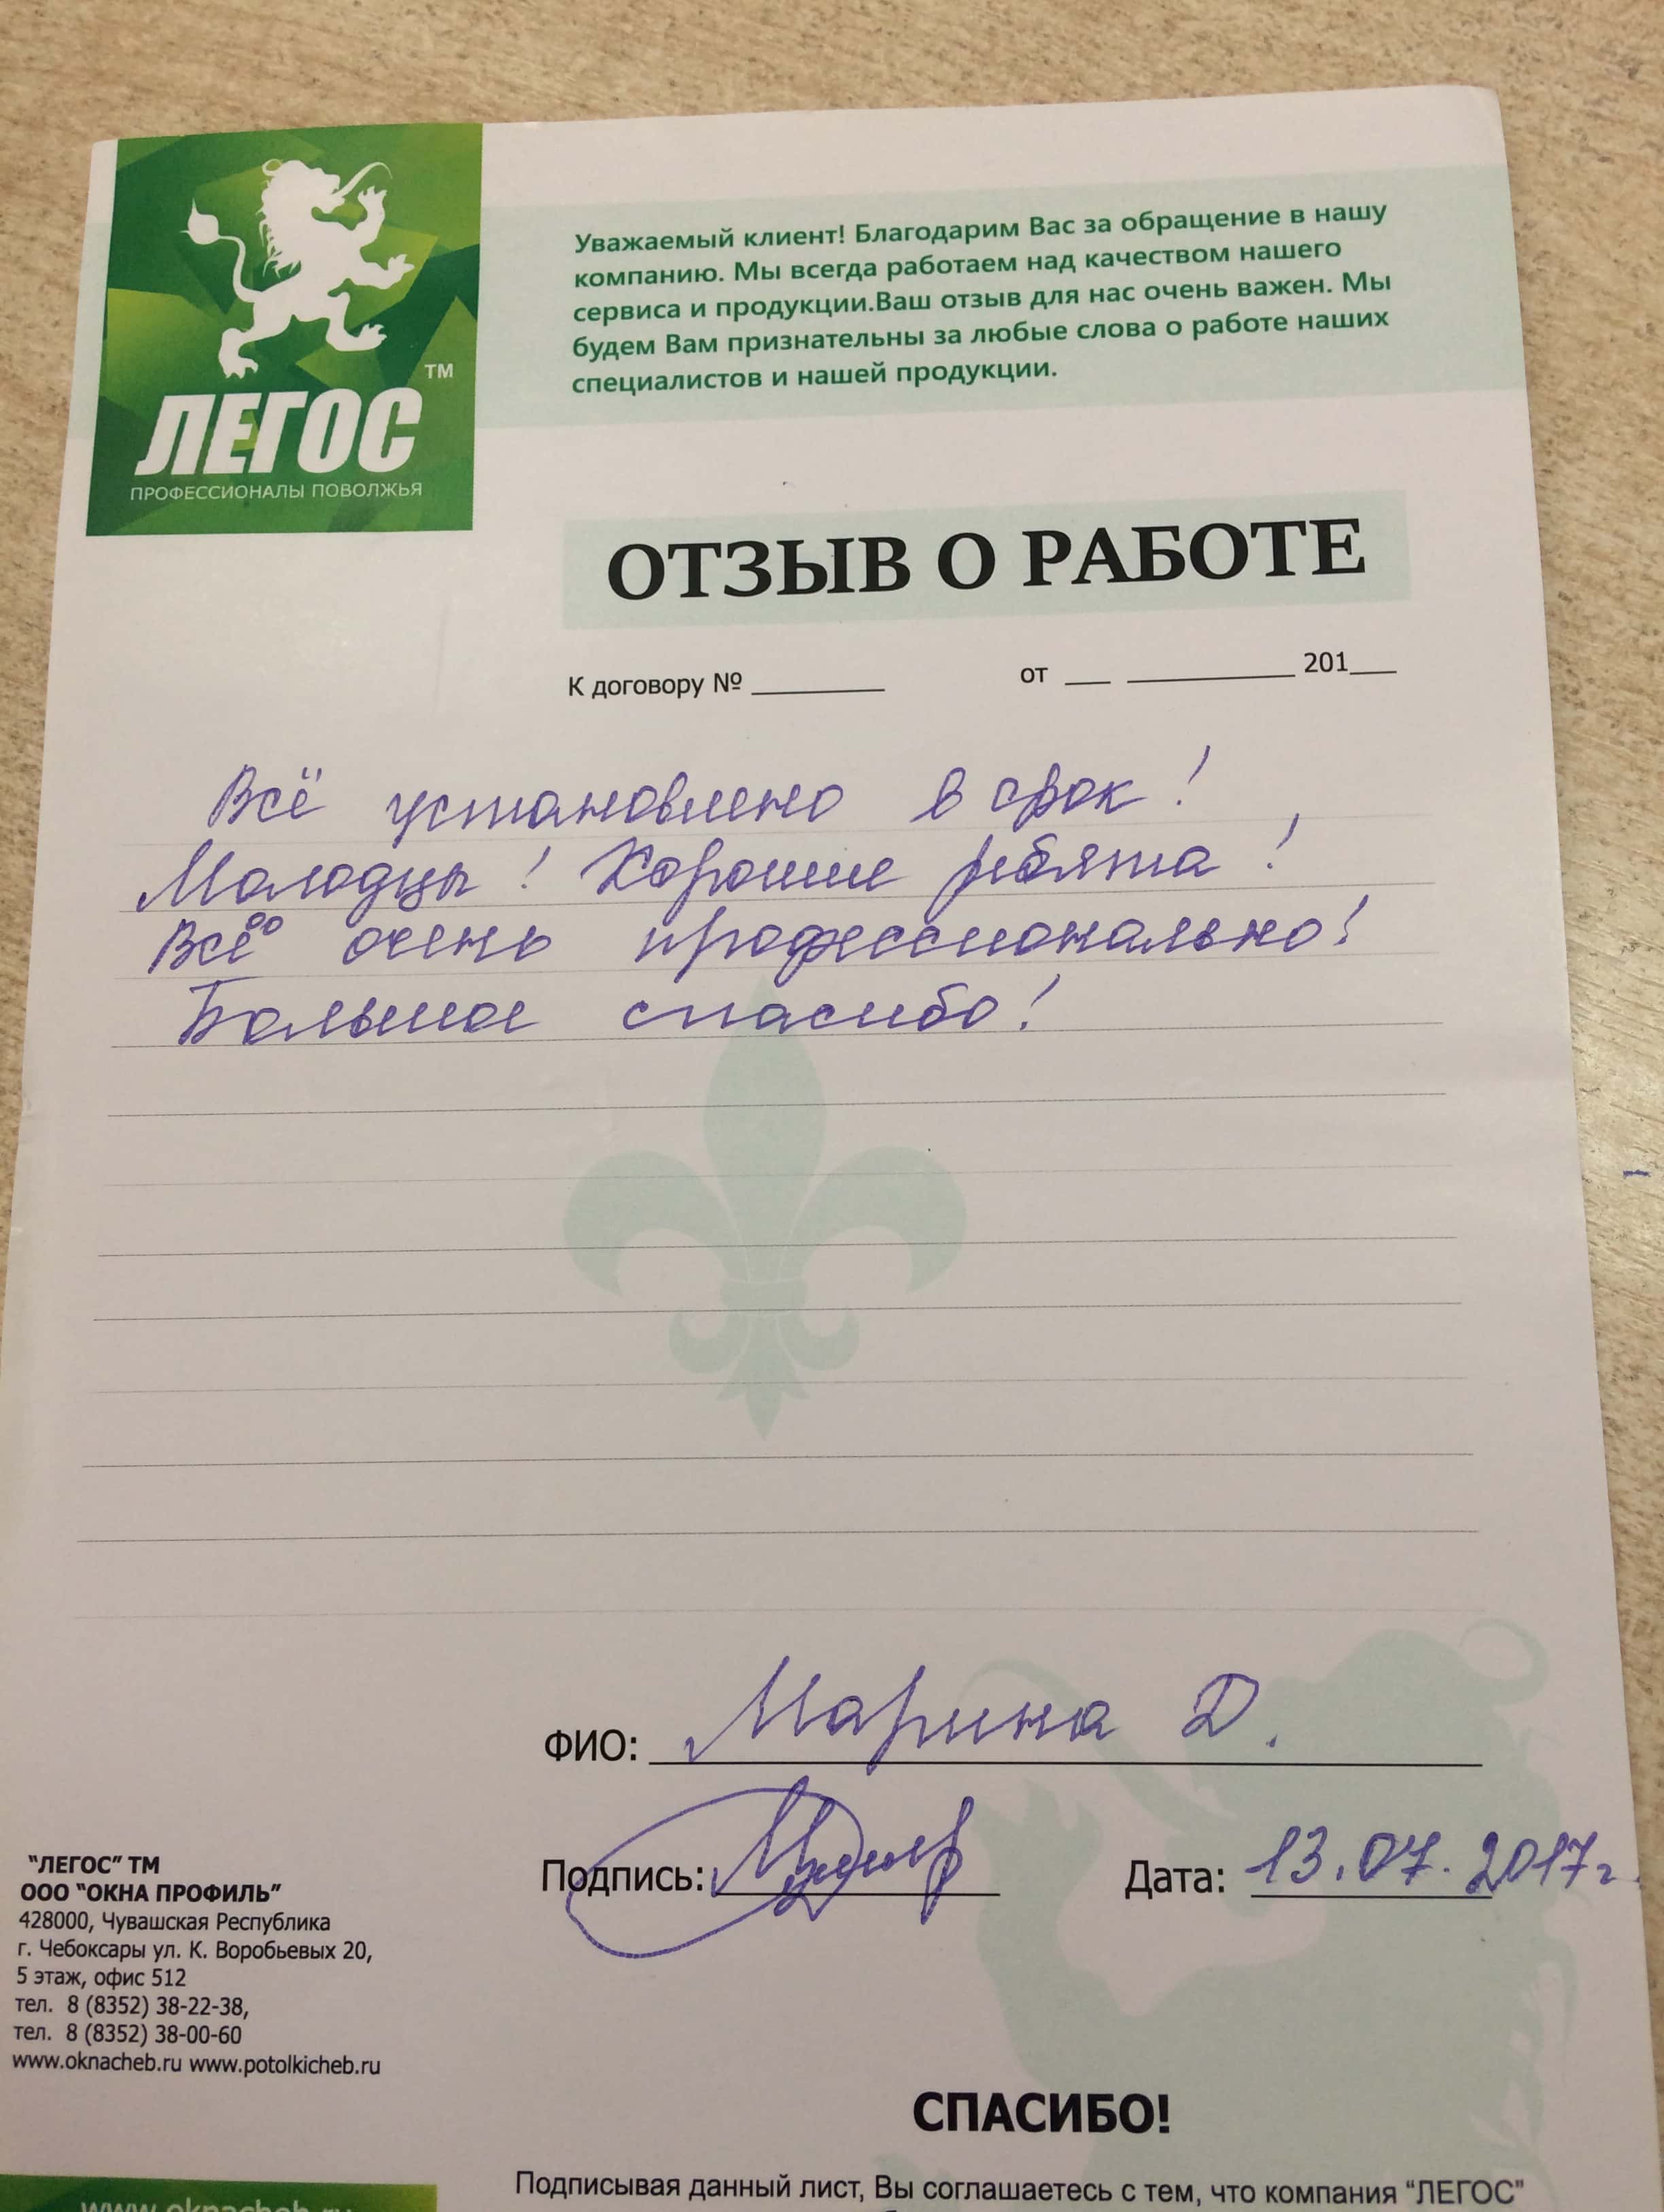 ТМ
ЛЕГОС
ПРОФЕССИОНАЛЫ ПОВОЛЖЬЯ
Уважаемый клиент! Благодарим Вас за обращение в нашу
компанию. Мы всегда работаем над качеством нашего
сервиса и продукции.Ваш отзыв для нас очень важен. Мы
будем Вам признательны за любые слова о работе наших
специалистов и нашей продукции.
ОТЗЫВ О РАБОТЕ
К договору № ______ от __ ________ 201__
Всё установлено в срок!
Молодцы! Хорошие ребята!
Всё очень профессионально!
Большое спасибо!
ФИО: Марина Д.
Подпись: Дата: 13.07.2017г.
"ЛЕГОС" ТМ
ООО "ОКНА ПРОФИЛЬ"
428000, Чувашская Республика
г. Чебоксары ул. К. Воробьевых 20,
5 этаж, офис 512
тел. 8 (8352) 38-22-38,
тел. 8 (8352) 38-00-60
www.oknacheb.ru www.potolkicheb.ru
СПАСИБО!
Подписывая данный лист, Вы соглашаетесь с тем, что компания "ЛЕГОС"
www.oknacheb.ru